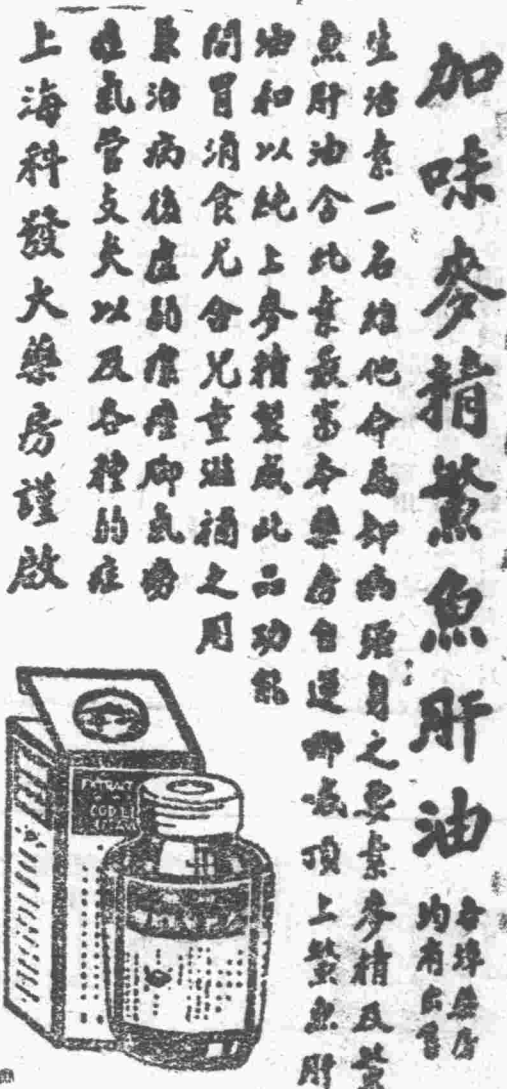 加味麥精鱉魚肝油
各埠藥房
均有出售
生活素一名維他命為却病強身之要素麥精及鱉
魚肝油含此素最富本藥房自運哪威頂上鱉魚肝
油和以純上麥精製成此品功能
開胃消食尤合兒童滋補之用
兼治病後虛弱瘰癧脚氣癆
症氣管支炎以及各種弱症
上海科發大藥房謹啟
EXTRACT
COD LI